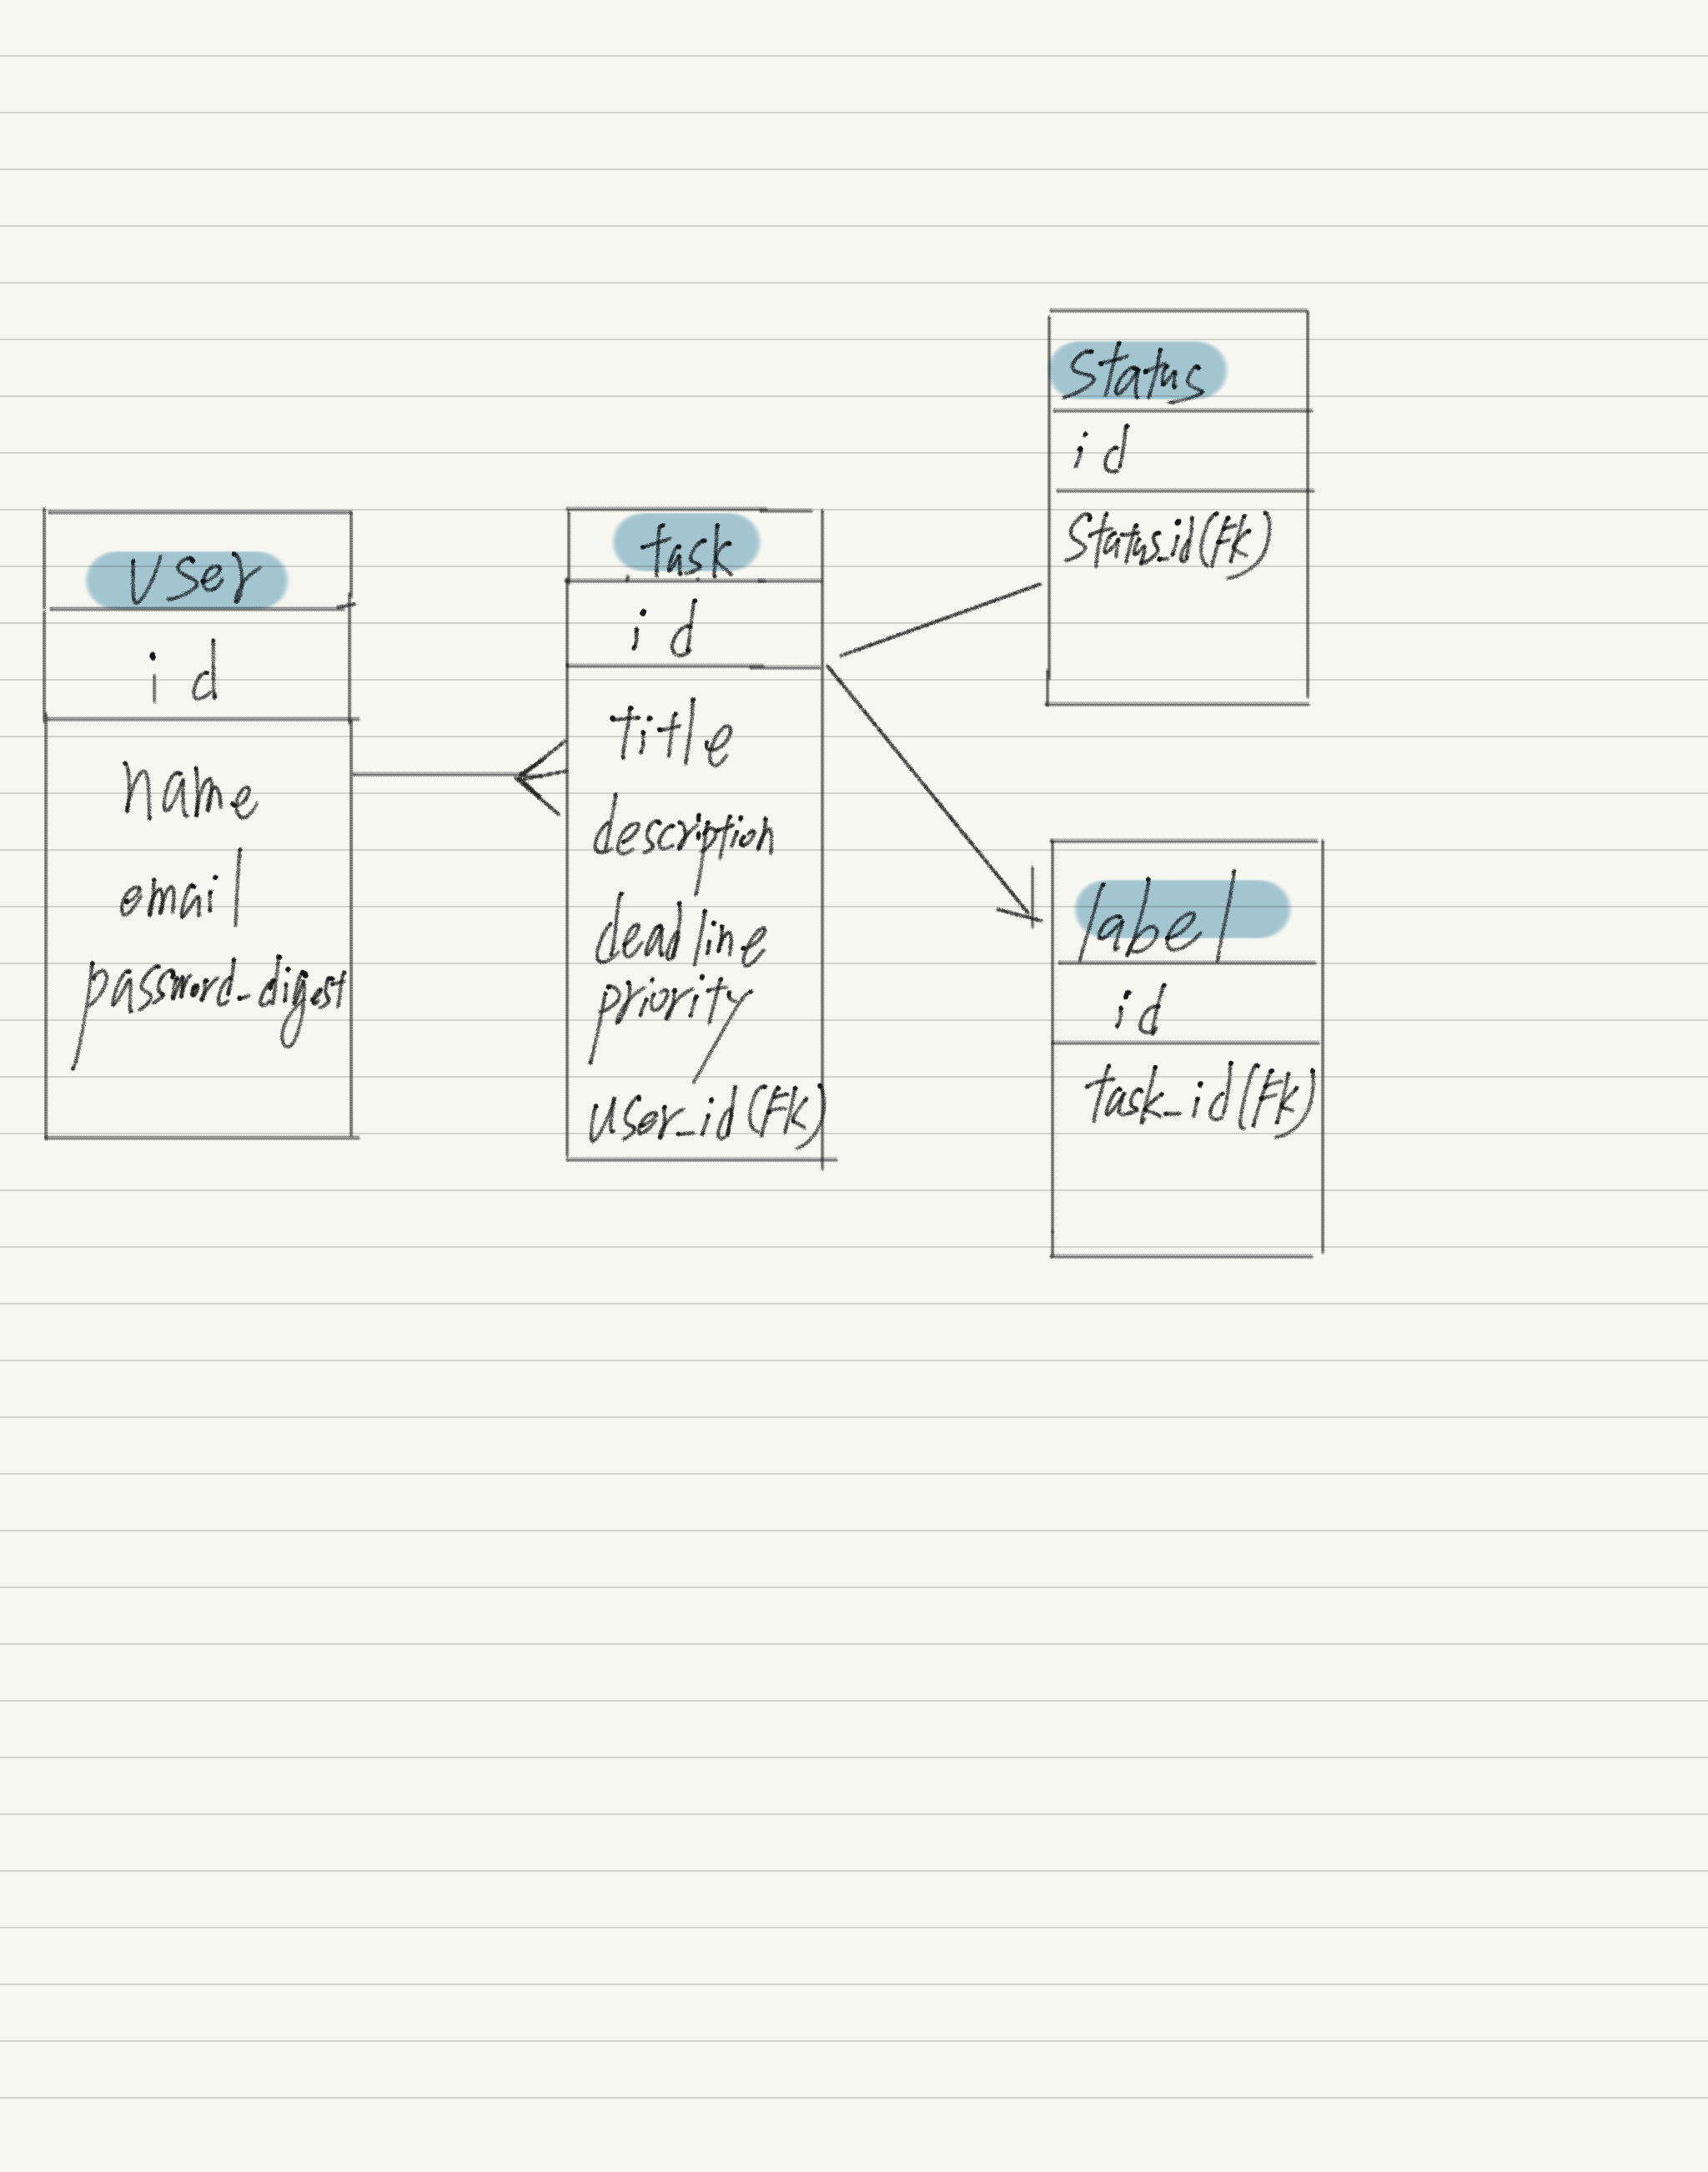 user
id
name
email
password_digest
task
id
title
description
deadline
priority
user_id(FK)
Status
id
Status_id(FK)
label
id
task_id(FK)